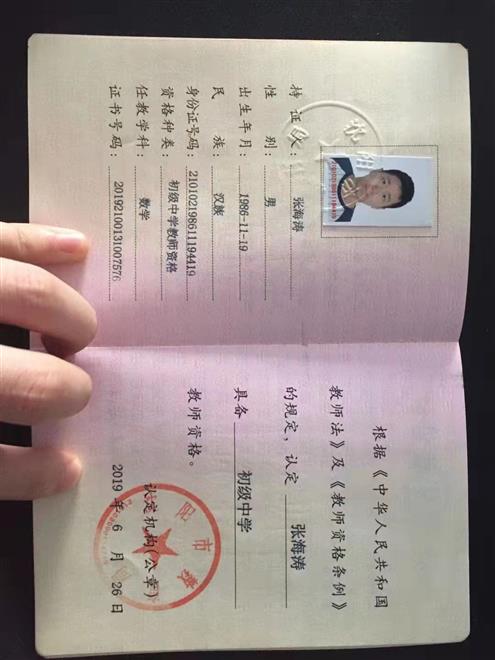 持 证 人：张海涛
性 别：男
出 生 年 月：1986-11-19
民 族：汉族
身份证号码：210102198611194419
资 格 种 类：初级中学教师资格
任 教 学 科：数学
证 书 号 码：20192100131007576
根据《中华人民共和国
教师法》及《教师资格条例》
的规定，认定 张海涛
具备 初级中学
教师资格。
认定机构(公章)
2019 年 6 月 26 日